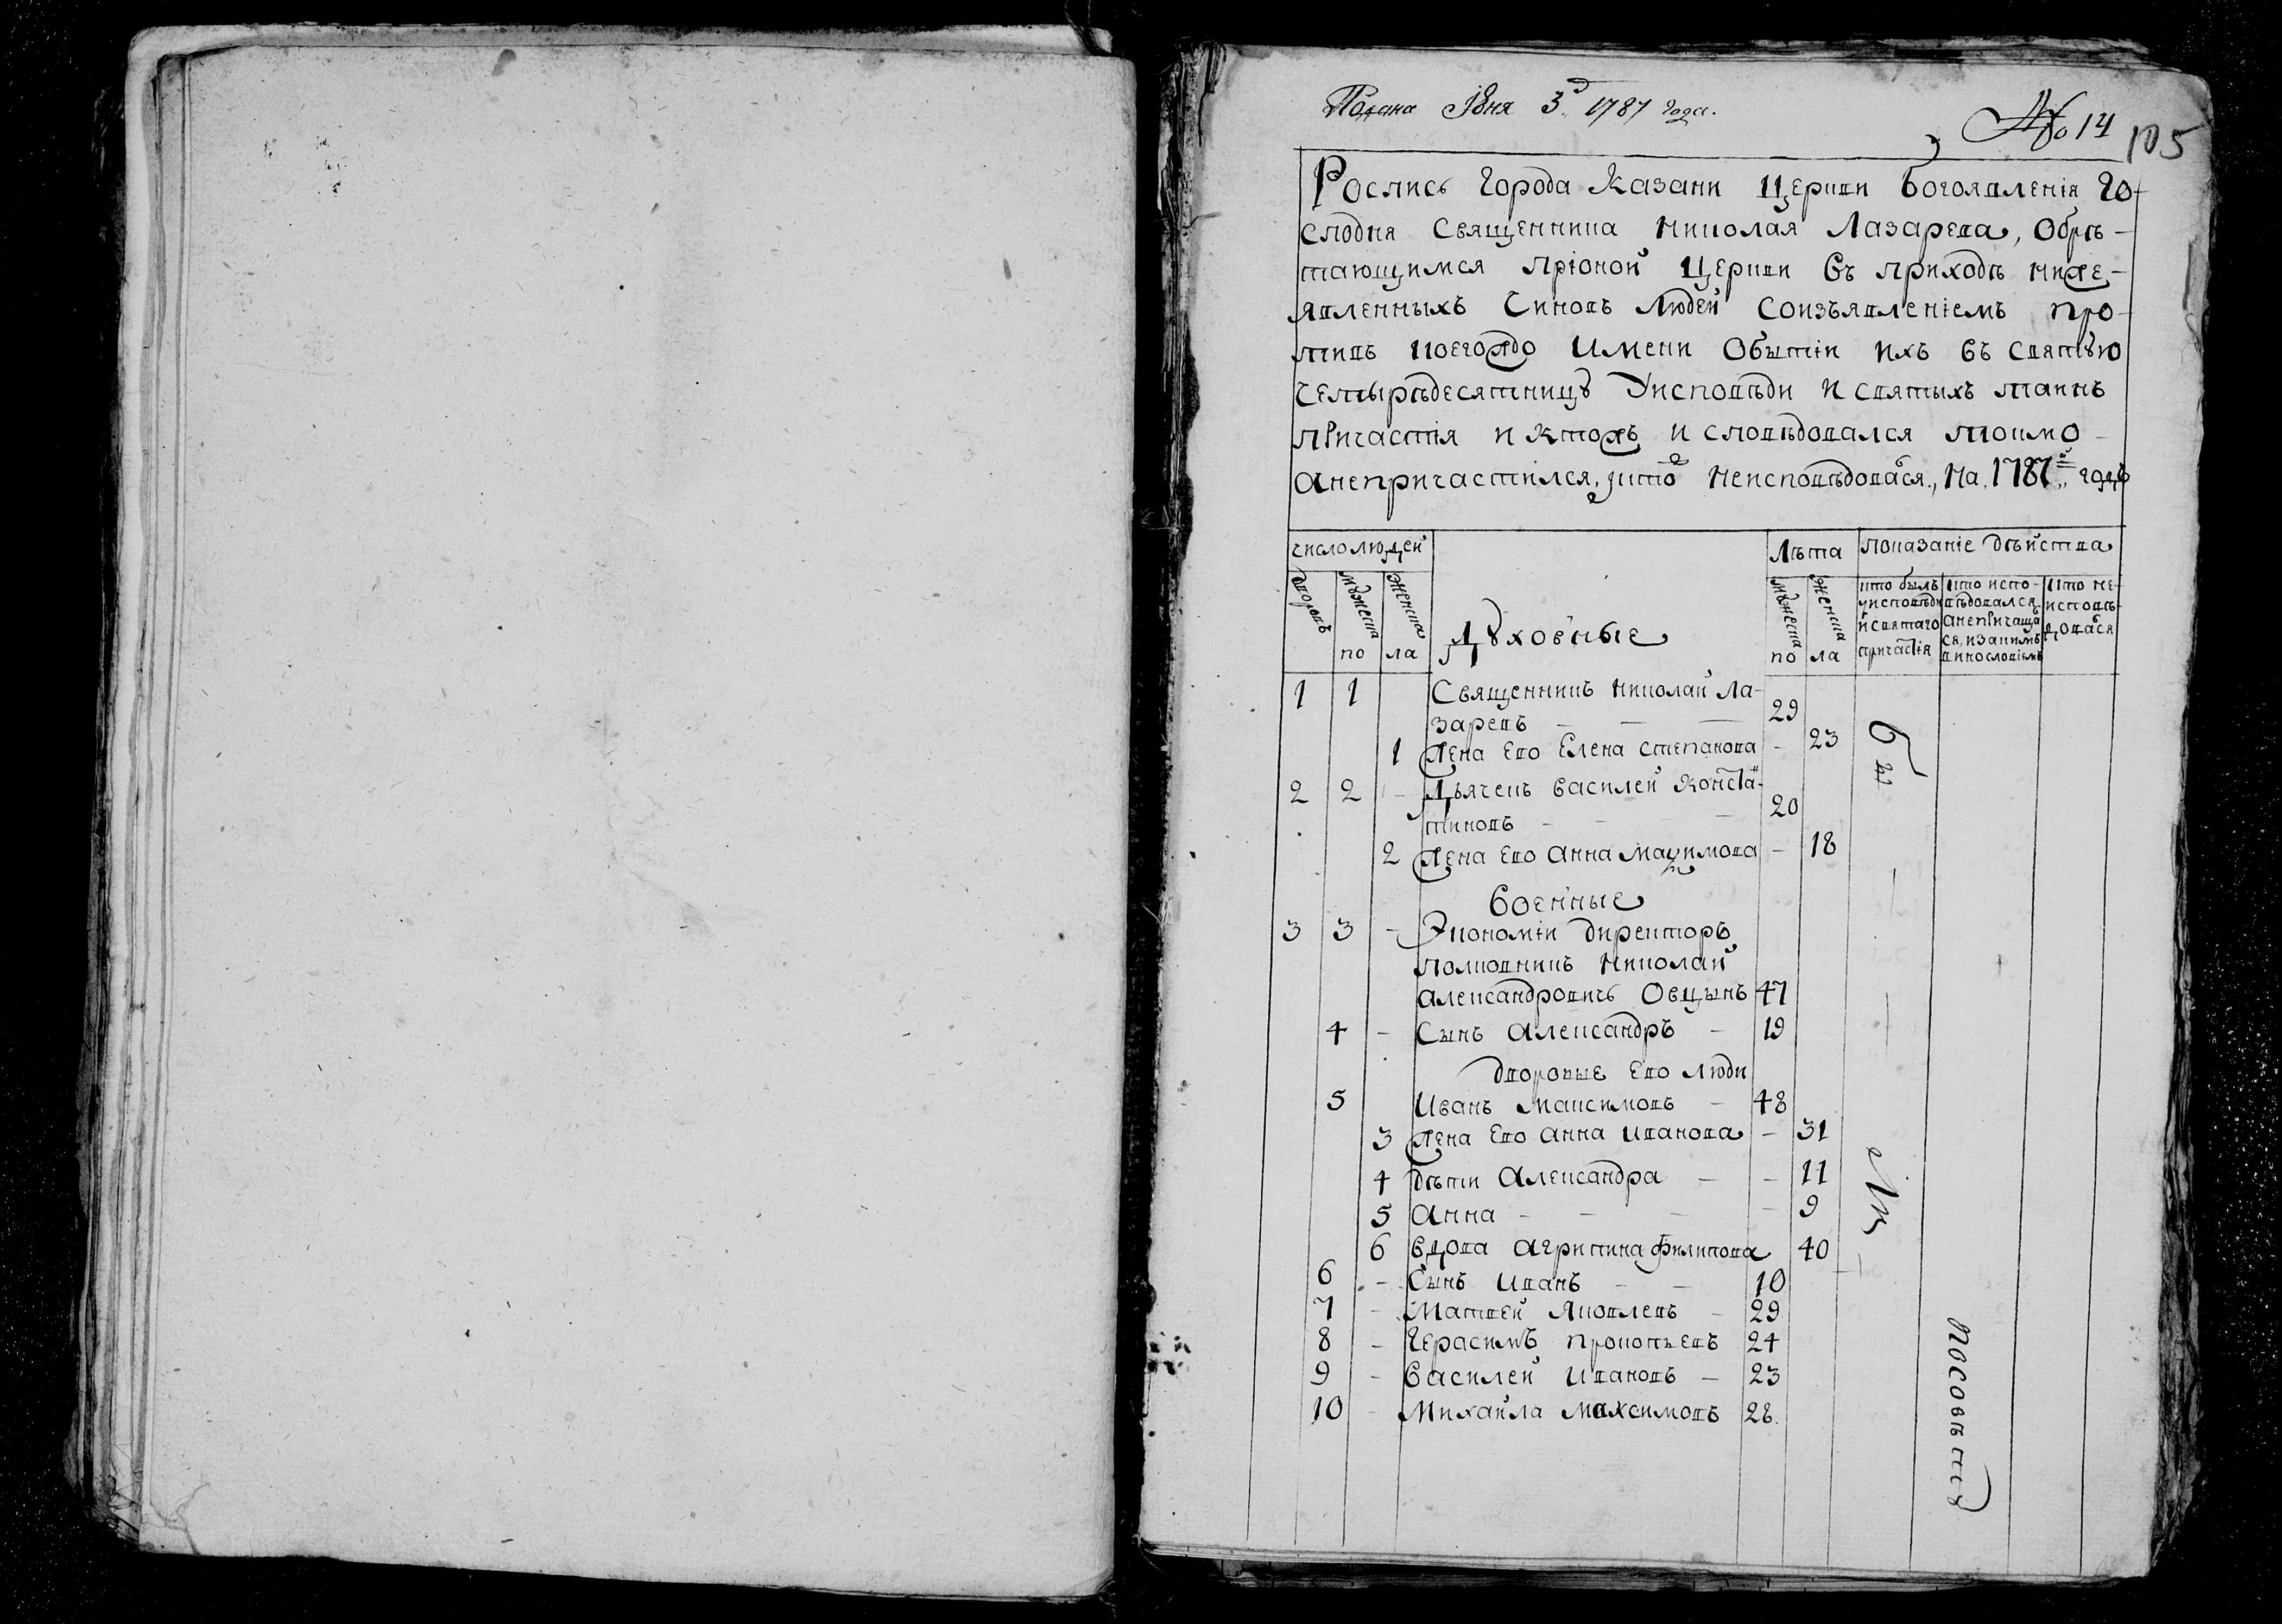 Подана Іюня 3г 1787 года.
№ 14
105
Роспись города Казани Церкви Богоявленія го-
сподня Священника Николая Лазарева, Обрѣ-
тающимся прионой Церкви въ приходѣ ниже-
явленныхъ Чиновъ людей Соизъявленіемъ про-
тивъ коегождо Имени Обытіи ихъ въ святую
Четыредесятницу Уисповѣди и святыхъ таинъ
причастія и ктожъ исповѣдовался токмо
анепричастился, икто неисповѣдовася, на 1787й годъ
число людей
Лѣта
показаніе дѣйства
дворовъ
мужеска
женска
мужеска
женска
кто былъ
уисповѣди
исвятаго
причастія
кто испо-
вѣдовался
анепричаща
ся, изакимъ
винословіемъ
кто не-
исповѣ-
довася
по ла
Духовные
по ла
1 1 Священникъ Николай Ла-
заревъ — — — 29
1 Жена Ево Елена степанова - 23
2 2 - Дьячекъ Василей Констан-
тиновъ - - - 20
2 Жена Ево Анна Максимова - 18
Военные
3 3 - Экономіи директоръ
полковникъ Николай
Александровичь Овцынъ 47
4 - Сынъ Александръ - 19
дворовые Ево люди
5 Иванъ Максимовъ - 48
3 Жена Ево Анна Иванова - 31
4 дѣти Александра - - 11
5 Анна - - - - 9
6 вдова Агрипина Филипова 40
6 - Сынъ Иванъ - - 10
7 - Матвей Яковлевъ - 29
8 - Герасимъ Прокопьевъ 24
9 - Василей Ивановъ - 23
10 - Михайла Максимовъ 28.
Бы
ли